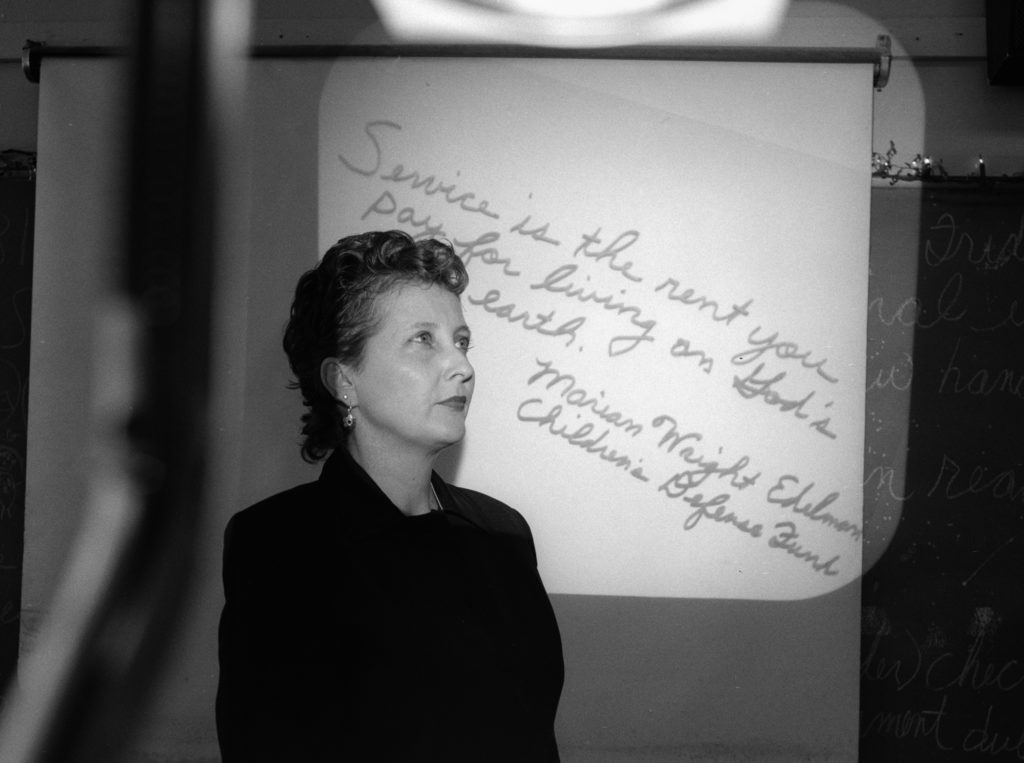 Service is the rent you
pay for living on God's
earth.
Marian Wright Edelman
Children's Defense Fund
in rea
check
ment due